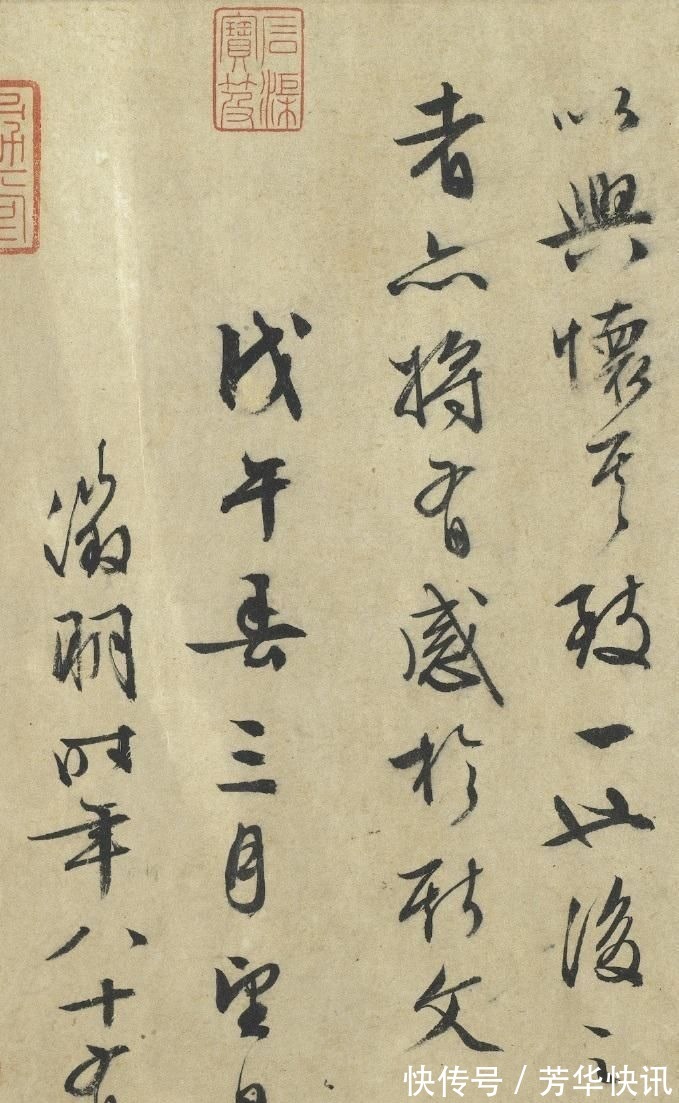 以興懷其致一也後之
者亦將有感於斯文
戊午春三月望日
徵明時年八十有
石渠寶笈
快传号 / 芳华快讯